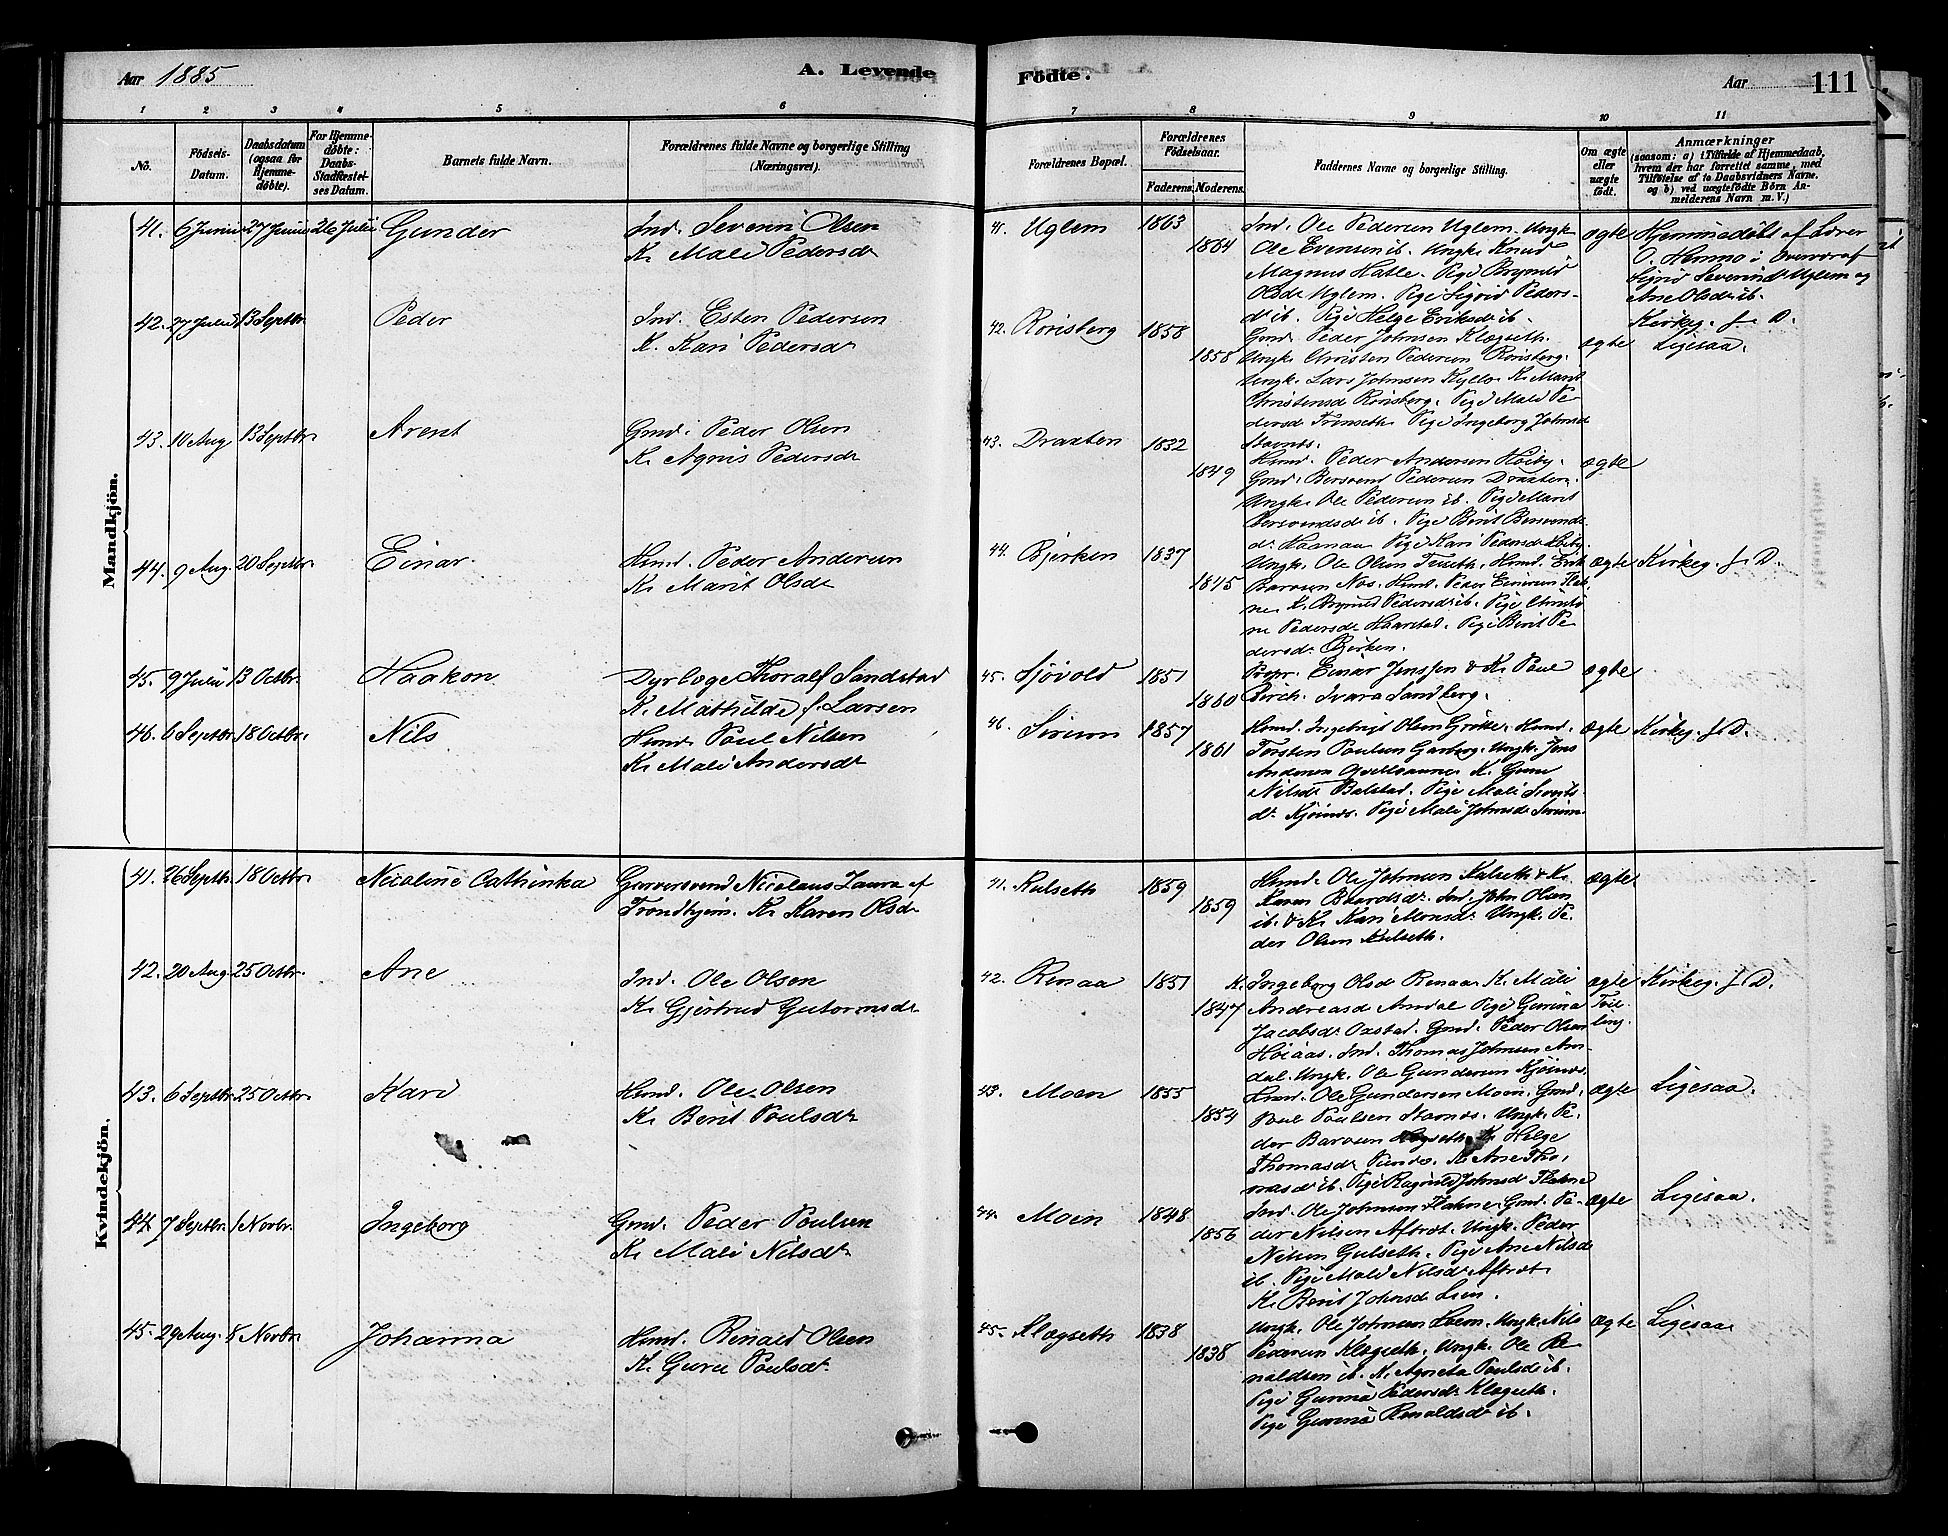 Aar 1885
A. Levende
Födte.
Aar
111
1 2 3 4 5 6
7 8 9 10 11
No.
Födsels-
Datum.
Daabsdatum
(ogsaa for
Hjemme-
döbte).
For Hjemme-
döbte:
Daabs-
Stadfæstel-
ses Datum.
Barnets fulde Navn.
Forældrenes fulde Navne og borgerlige Stilling
(Næringsvei).
Forældrenes Bopæl.
Forældrenes
Födselsaar.
Faderens. Moderens.
Faddernes Navne og borgerlige Stilling.
Om ægte
eller
uægte
födt.
Anmærkninger
(saasom: a) i Tilfælde af Hjemmedaab,
hvem der har forrettet samme, med
Tilföielse af to Daabsvidners Navne.
og b) ved uægtefödte Börn An-
melderens Navn m. V.)
Mandkjön.
41. 6 Juni 27 Juni 26 Juli Gunder
Ind. Severin Olsen
K. Mali Pedersdr
41. Uglem 1863
1864
Ind. Ole Pedersen Uglem. Ungk.
Ole Evensen ib. Ungk. Knud
Magnus Hatle. Pige Brynild
Olsdr Uglem. Pige Sigrid Peders-
dr ib. Pige Helge Eriksdr ib.
ægte
Hjemmedöbt af Lærer
O. Hemmo i Overvær af
Sigrid Severinsdr Uglem og
Ane Olsdr ib.
Kirkeg. f. D.
42. 27 Juli 13 Septbr. Peder
Ind. Esten Pedersen
K. Kari Pedersdr
42. Rönsberg 1858
1858
Gmd. Peder Johnsen Klægseth.
Ungk. Christen Pedersen Rönsberg.
Ungk. Lars Johnsen Kyllo. K. Marit
Christensd Rönsberg. Pige Mali Pe-
dersd Trönseth. Pige Ingeborg Johnsd
Stavnes.
ægte
Ligesaa.
43. 10 Aug 13 Septbr. Arent
Gmd. Peder Olsen
K. Agnis Pedersdr
43. Draxten 1832
1849
Hmd. Peder Andersen Höiby.
Gmd. Bersvend Pedersen Draxten.
Ungk. Ole Pedersen ib. Pige Marit
Bersvendsd ib. Pige Berit Bersvends-
dr Haanaa Pige Kari Pedersdr Höiby.
ægte
44. 9 Aug. 20 Septbr. Einar.
Hmd. Peder Andersen
K. Marit Olsdr
44. Bjerken 1837
1845
Ungk. Ole Olsen Fuseth. Hmd. Erik
Barosen Nos. Hmd. Peder Einarsen Flak-
ne K. Brynild Pedersdr ib. Pige Christi-
ne Pedersdr Haarstad. Pige Berit Pe-
dersdr Bjerken.
ægte Kirkeg. f. D.
45. 9 Juli 13 Octbr. Haakon
Dyrlæge Thoralf Sandstad
K. Mathilde f. Larsen
45. Sjövold 1851
1860
Propr. Einar Jenssen & K. Paul
Birch. Ivara Sandberg.
ægte
46. 6 Septbr. 18 Octbr. Nils
Hmd. Paul Nilsen
K. Mali Andersdr
46. Sörum 1857
1861
Hmd. Ingebrigt Olsen Grötte. Hmd.
Torsten Paulsen Garberg. Ungk. Jens
Andersen Qvelloaunet K. Guru
Nilsdr Balstad. Pige Mali Siverts-
dr Kjösnes. Pige Mali Johnsdr Sörum.
ægte Kirkeg. f. D.
Kvindekjön.
41. 26 Septbr. 18 Octbr. Nicoline Cathinka
Garversvend Nicolaus Laura af
Trondhjem. K. Karen Olsdr
41. Kulseth 1859
1859
Hmd. Ole Johnsen Kulseth & K.
Karen Baardsdr. Ind. John Olsen
ib. & K. Kari Monsdr. Ungk. Pe-
der Olsen Kulseth.
ægte
42. 20 Aug. 25 Octbr. Ane
Ind. Ole Olsen
K. Gjertrud Gutormsdr
42. Renaa 1851
1847
K. Ingeborg Olsd Renaa K. Mali
Andreasd Amdal Pige Gurina
Jacobsdr Oxstad. Gmd. Peder Olsen
Höiaas. Ind. Thomas Johnsen Am-
dal. Ungk. Ole Gundersen Kjösnes.
ægte
Tvil-
ling.
Kirkeg. f. D.
43. 6 Septbr. 25 Octbr. Kari
Hmd. Ole Olsen
K. Berit Poulsdr
43. Moen 1855
1854
Hmd. Ole Gundersen Moen. Gmd.
Poul Poulsen Stavnes. Ungk. Pe-
der Barosen Högseth. K. Helge
Thomasdr K. Ane Tho-
masdr ib. Pige Ragnild Johnsd Flakne
ægte Ligesaa.
44. 7 Septbr. 1 Novbr. Ingeborg
Gmd. Peder Poulsen
K. Mali Nilsdr
44. Moen 1848
1856
Ind. Ole Johnsen Flakne. Gmd. Pe-
der Nilsen Aftret. Ungk. Peder
Nilsen Gulseth. Pige Ane Nilsd
ib. Pige Mali Nilsdr Aftret.
K. Berit Johnsd Lien.
ægte Ligesaa.
45. 29 Aug. 8 Novbr. Johanna
Hmd. Renald Olsen
K. Guru Poulsdr
45. Klægseth 1838
1838
Ungk. Ole Johnsen Hoem. Ungk. Nils
Pedersen Klægseth. Ungk. Ole Re-
naldsen ib. K. Agneta Poulsd ib.
Pige Gunna Pedersdr Klægseth.
Pige Gunna Renaldsdr ib.
ægte Ligesaa